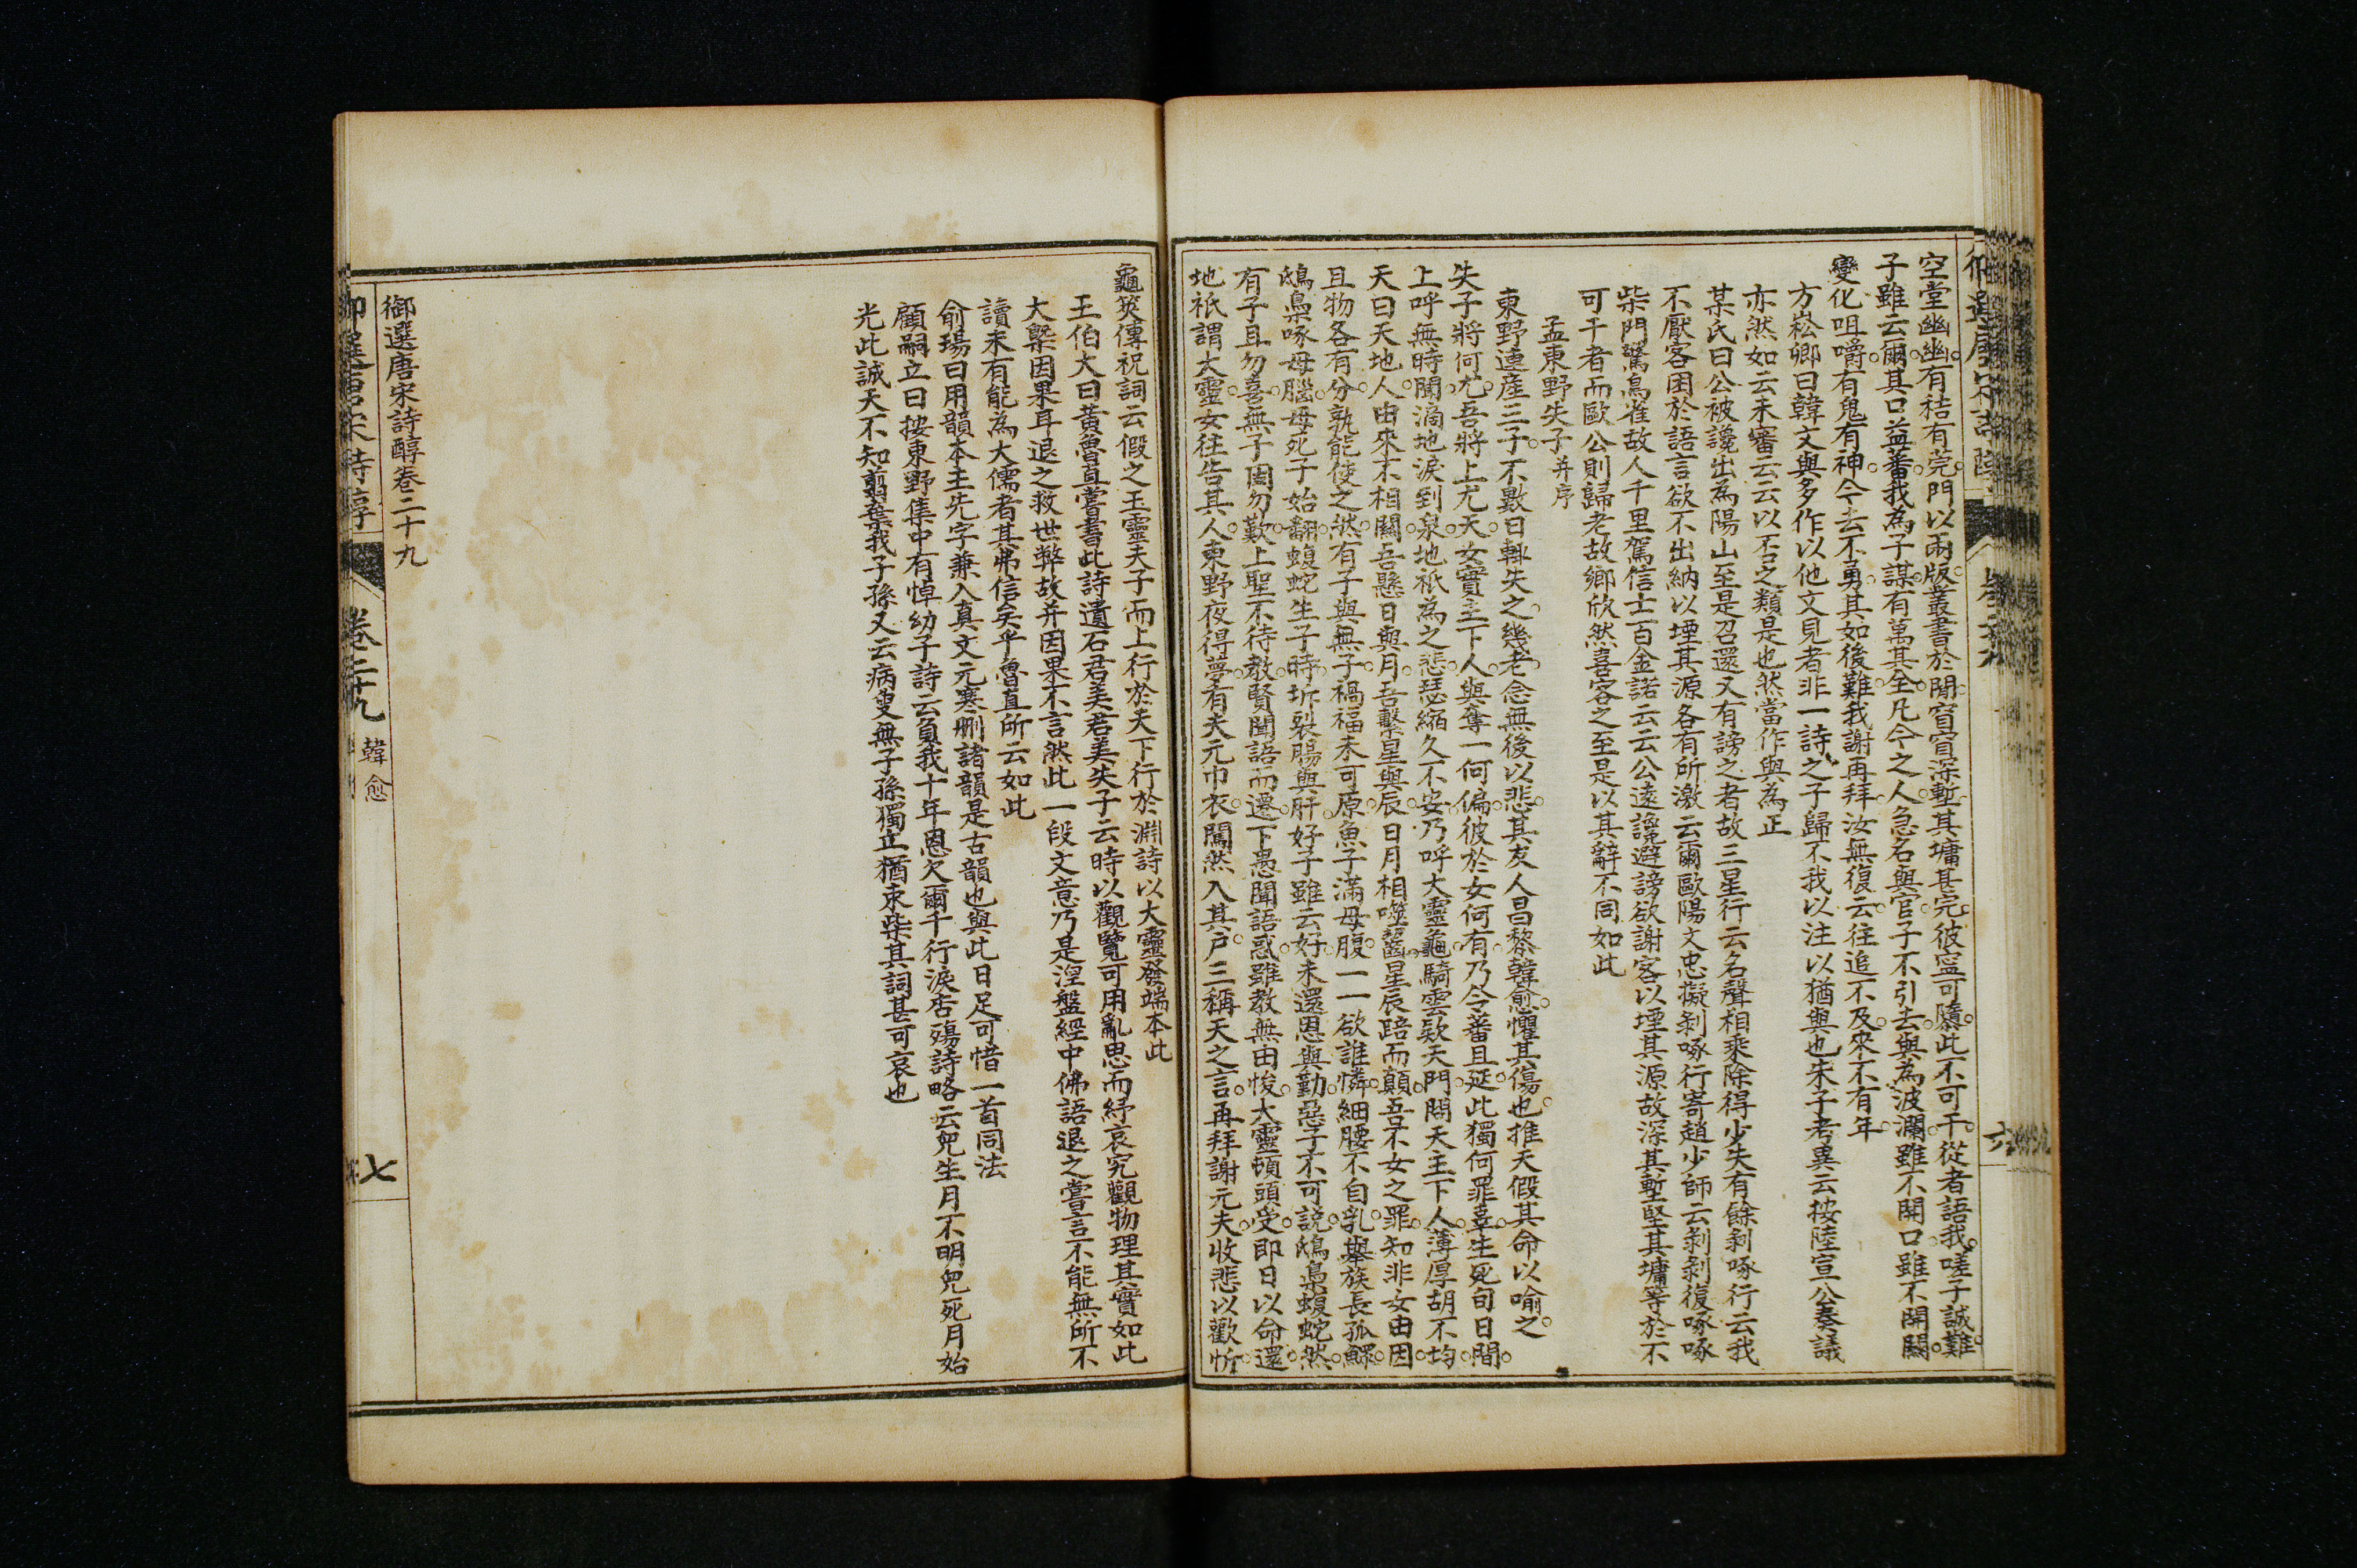 空堂幽幽有秸有莞門以兩版叢書於閒窅窅深塹其墉甚完彼寧可隳此不可干從者語我嗟子誠難
子雖云爾其口益蕃我為子謀有萬其全凡今之人急名與官子不引去與為波瀾雖不開口雖不開關
變化咀嚼有鬼有神今去不勇其如後難我謝再拜汝無復云往追不及來不有年
方崧卿曰韓文與多作以他文見者非一詩之子歸不我以注以猶與也朱子考異云按陸宣公奏議
亦然如云未審云云以否之類是也然當作與為正
某氏曰公被讒出為陽山至是召還又有謗之者故三星行云名聲相乘除得少失有餘剝啄行云我
不厭客困於語言欲不出納以堙其源各有所激云爾歐陽文忠擬剝啄行寄趙少師云剝剝復啄啄
柴門驚鳥雀故人千里駕信士百金諾云云公遠讒避謗欲謝客以堙其源故深其塹堅其墉等於不
可干者而歐公則歸老故鄉欣然喜客之至是以其辭不同如此
孟東野失子并序
東野連產三子不數日輒失之幾老念無後以悲其友人昌黎韓愈懼其傷也推天假其命以喻之
失子將何尤吾將上尤天女實主下人與奪一何偏彼於女何有乃令蕃且延此獨何罪辜生死旬日間
上呼無時聞滴地淚到泉地祇為之悲瑟縮久不安乃呼大靈龜騎雲款天門問天主下人薄厚胡不均
天曰天地人由來不相關吾懸日與月吾繫星與辰日月相噬齧星辰踣而顛吾不女之罪知非女由因
且物各有分孰能使之然有子與無子禍福未可原魚子滿母腹一一欲誰憐細腰不自乳舉族長孤鰥
鴟梟啄母腦母死子始翻蝮蛇生子時坼裂腸與肝好子雖云好未還恩與勤惡子不可說鴟梟蝮蛇然
有子且勿喜無子固勿歎上聖不待教賢聞語而遷下愚聞語惑雖教無由悛大靈頓頭受即日以命還
地祇謂大靈女往告其人東野夜得夢有夫元巾衣闖然入其戶三稱天之言再拜謝元夫收悲以歡忻
龜筴傳祝詞云假之玉靈夫子而上行於天下行於淵詩以大靈發端本此
王伯大曰黃魯直嘗書此詩遺石君美君美失子云時以觀覽可用亂思而紓哀究觀物理其實如此
大槩因果耳退之救世弊故并因果不言然此一段文意乃是涅盤經中佛語退之嘗言不能無所不
讀未有能為大儒者其弗信矣乎魯直所云如此
俞瑒曰用韻本主先字兼入真文元寒刪諸韻是古韻也與此日足可惜一首同法
顧嗣立曰按東野集中有悼幼子詩云負我十年恩欠爾千行淚杏殤詩略云兒生月不明兒死月始
光此誠天不知翦棄我子孫又云病叟無子孫獨立猶束柴其詞甚可哀也
御選唐宋詩醇卷二十九
御選唐宋詩醇
卷二十九
韓愈
七